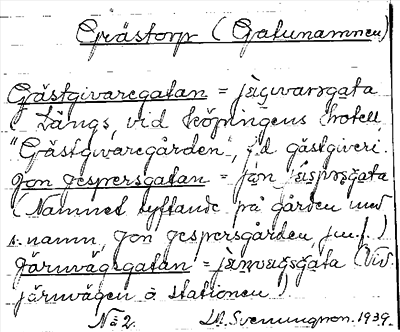 Grästorp (Gatunamnen)
Gästgivaregatan = jäsjivarsgata
(Längs, vid köpingens hotell,
"Gästgivaregården", f.d. gästgiveri.
Jon Jespersgatan = jón jäspərsgata
(Namnet syftande på gården med
s. namn, Jon Jespersgården, jmf.)
Järnvägsgatan = jä̀ɳvägsgáta (Vid
järnvägen o stationen)
No 2. D.A. Svenningson. 1939.